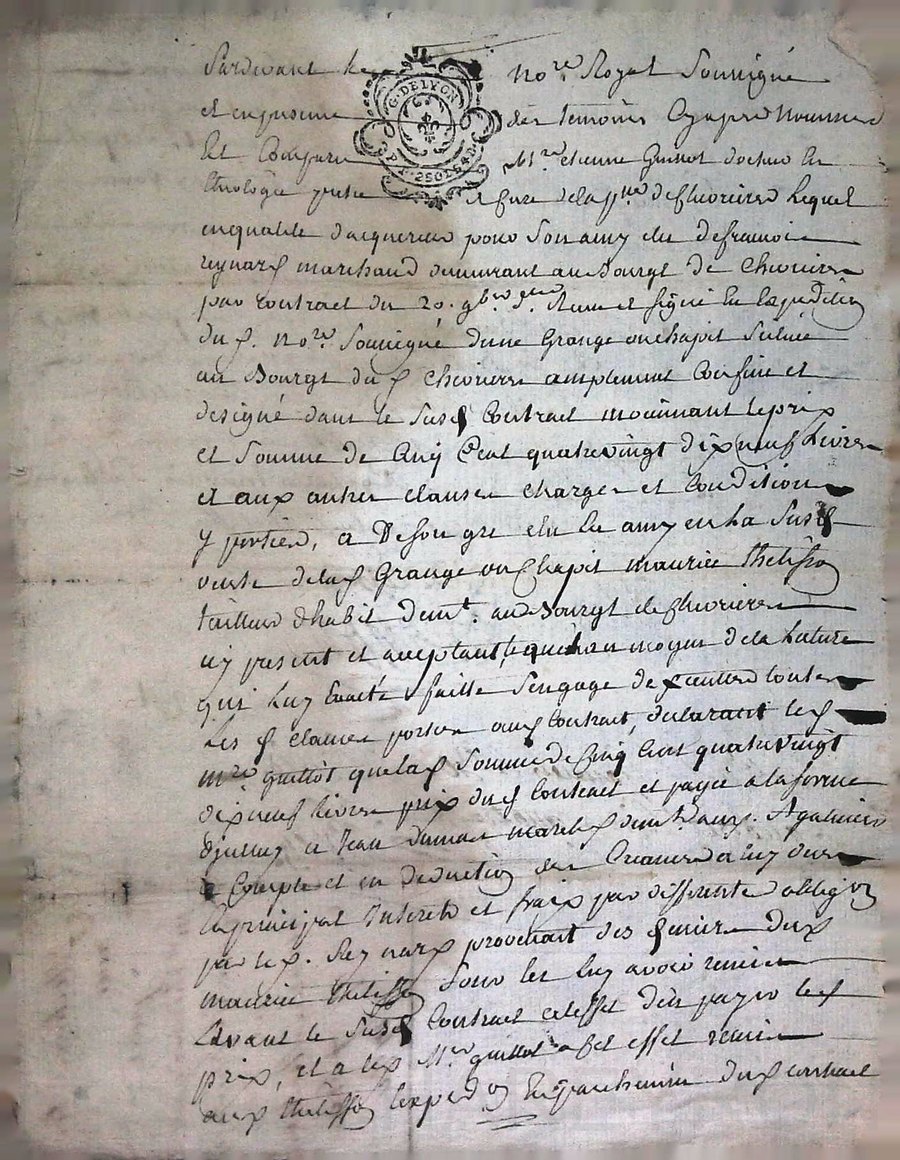 Pardevant le no.re Royal Soussigné
G. DE LYON
P. P. 2 SOLS 4 D.
et en presence des temoins Cy apres Nommés
fut Comparu M.re etienne Guillot docteur en
theologie pretre et Cure de la p.sse de Chevrieres Lequel
en qualité d'acquereur pour Son amy elu de francois
reynard marchand demeurant au Bourgt de Chevrieres
par Contract du 20. 9bre receu et signé en Expedition
du d. no.re Soussigné d'une Grange ou chapit Scituée
au Bourgt du d Chevrieres amplement Confiné et
designé dans le Susd Contract moiennant le prix
et Somme de Cinq Cent quatrevingt dix neuf Livres
et aux autres clauses charges et Conditions
y portées, a De Son gre elu en amy en La Susd
vente de lad Grange ou Chapit maurice thelisson
tailleur d'habit dem.t au Bourgt de Chevrieres
icy present et acceptant, lequel au moyen de la Lature
qui Luy en a été faitte S'engage de toutes
Les d clauses portées aud Contract, declarant led
m.re guillot que lad Somme de Cinq Cent quatrevingt
dix neuf Livres prix dud Contract et payée a la forme
d'iceluy a Jean Dumas march.d dem.t aux
a Compte et en Deduction des Creances a luy dues
en principal Interets et frais par differente oblig.on
par led. Reynard provenait des deniers dud
maurice thelisson pour les luy avoir remis
avant le Susd Contract a l'effet d'en payer led
prix, et a led M.re guillot a Cet effet remis
aud thelisson l'exped.on En parchemin dud contract